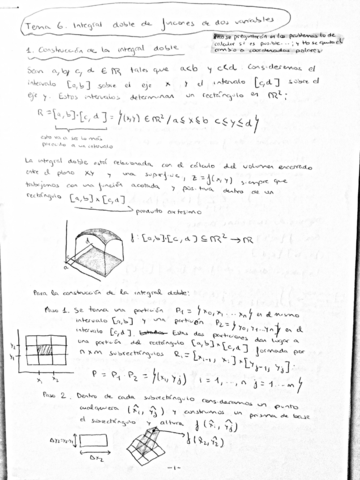 Tema 6. Integral doble de funciones de dos variables
1. Construcción de la integral doble
Sean a, b y c, d ∈ ℝ tales que a<b y c<d. Consideremos el
intervalo [a,b] sobre el eje x y el intervalo [c,d] sobre el
eje y. Estos intervalos determinan un rectángulo en ℝ²:
R = [a,b]·[c,d] = {(x,y) ∈ ℝ² / a≤x≤b c≤y≤d}
La integral doble está relacionada con el cálculo del volumen encerrado
entre el plano XY y una superficie, z = f(x,y) siempre que
trabajemos con una función acotada y positiva dentro de un
rectángulo [a,b]×[c,d]
producto cartesiano
f: [a,b]·[c,d] ⊆ ℝ² → ℝ
Para la construcción de la integral doble:
Paso 1. Se toma una partición P₁ = {x₀, x₁, ... xₙ} en el mismo
intervalo [a,b] y una partición P₂ = {y₀, y₁, ... yₘ} en el
intervalo [c,d]. Estas dos particiones dan lugar a
una partición del rectángulo [a,b]×[c,d] formada por
n×m subrectángulos
P = P₁ P₂ = {(xᵢ, yⱼ) i = 1, ..., n j = 1 ... m}
Paso 2. Dentro de cada subrectángulo consideramos un punto
cualquiera (x̂ᵢ, ŷⱼ) y construimos un prisma de base
el subrectángulo y altura f(x̂ᵢ, ŷⱼ)
-1-